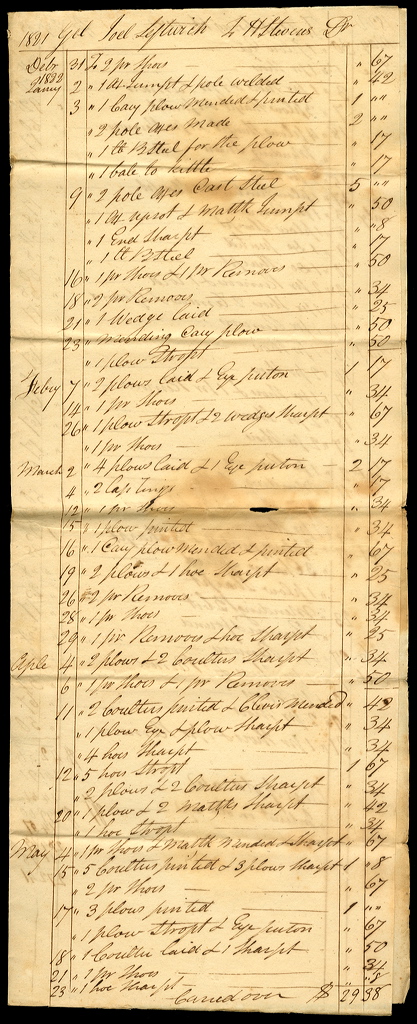 1821 Gel Joel Leftwich To H Stevens Dr
Decbr 31 To 2 pr Shoes " 67
1822
Jany 2 " 1 Ax Jumpt & pole welded " 42
3 " 1 Cary plow mended & pinted 1 ""
" 2 pole Axes Made 2 ""
" 1 lb B Steel for the plow " 17
" 1 bale to kittle " 17
9 " 2 pole Axes Cast Steel 5 ""
" 1 Ax upsot & Matth Jumpt " 50
" 1 End Sharpt " "8
" 1 lb B Steel " 17
16 " 1 pr Shoes & 1 pr Removes " 50
18 " 2 pr Removes " 34
21 " 1 Wedge laid " 25
23 " Mending Cary plow " 50
" 1 plow Stropt " 50
Febry 7 " 2 plows laid & Eye puton 1 17
14 " 1 pr Shoes " 34
26 " 1 plow Stropt & 2 wedges Sharpt " 67
" 1 pr Shoes " 34
March 2 " 4 plows laid & 1 Eye puton 2 17
4 " 2 Cap rings " 17
12 " 1 pr Shoes " 34
15 " 1 plow pinted " 34
16 " 1 Cary plow Mended & pinted " 67
19 " 2 plows & 1 hoe Sharpt " 25
26 " 2 pr Removes " 34
28 " 1 pr Shoes " 34
29 " 1 pr Removes & hoe Sharpt " 25
Aple 4 " 2 plows & 2 Coulters Sharpt " 34
6 " 1 pr Shoes & 1 pr Removes " 50
11 " 2 Coulters pinted & Clevis Mended " 42
" 1 plow Eye & plow Sharpt " 34
" 4 hoes Sharpt " 34
12 " 5 hoes Stropt 1 67
" 2 plows & 2 Coulters Sharpt " 34
20 " 1 plow & 2 Matths Sharpt " 42
" 1 hoe Stropt " 34
May 4 " 1 pr Shoes & Matth Mended & Sharpt " 67
15 " 5 Coulters pinted & 3 plows Sharpt 1 "8
" 2 pr Shoes " 67
17 " 3 plows pinted 1 ""
" 1 plow Stropt & Eye puton " 67
18 " 1 Coulter laid & 1 Sharpt " 50
21 " 1 pr Shoes " 34
23 " 1 hoe Sharpt " "8
Carred over $ 29 38